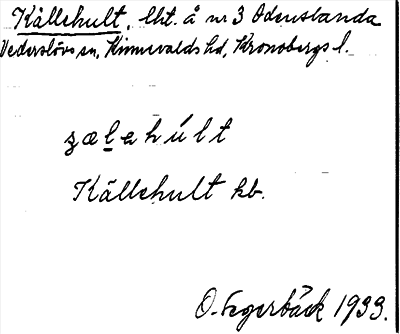 Källehult, lht. å nr 3 Odenslanda
Vederslövs sn, Kinnevalds hd, Kronobergs l.
Källehult kb.
O. Fagerbäck 1933.